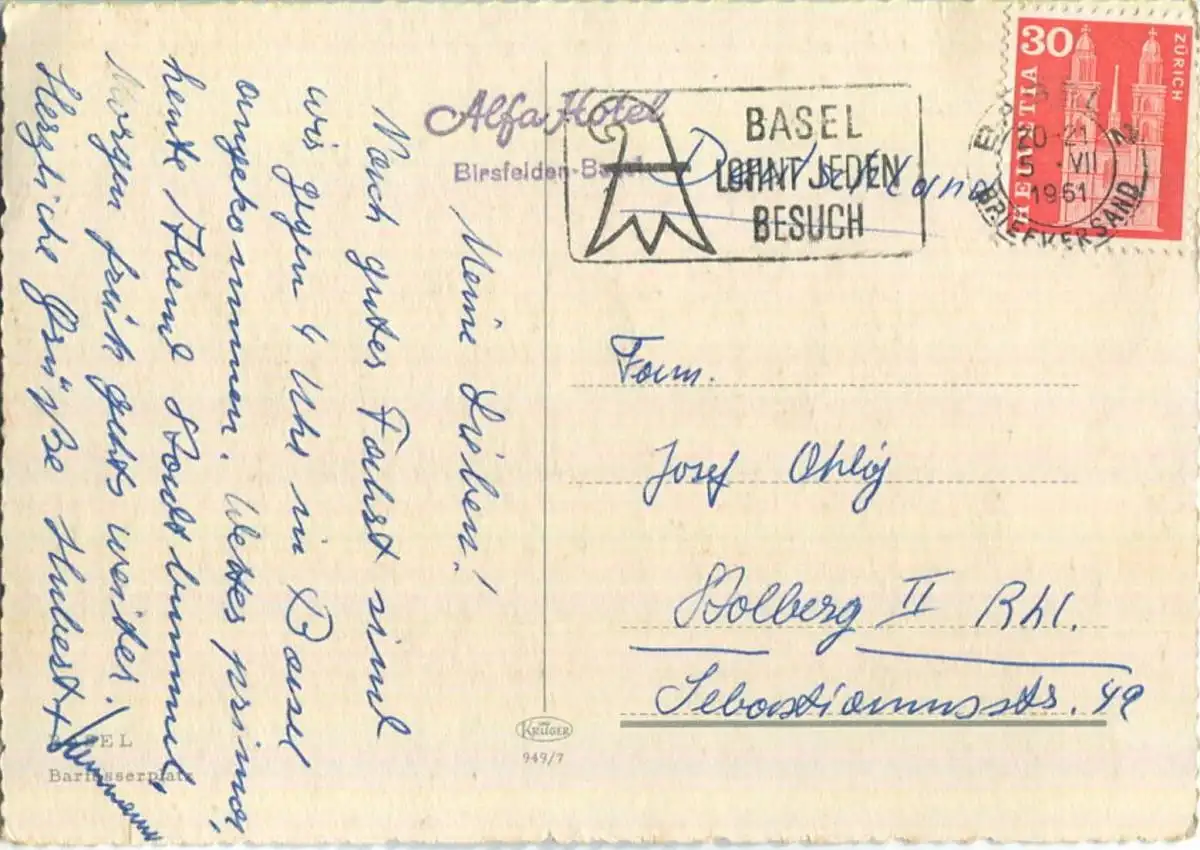 Meine Lieben!
Nach guter Fahrt sind
wir gegen 4 Uhr in Basel
angekommen. Wetter prima,
heute Abend Stadtbummel
Morgen früh gehts weiter!
Herzliche Grüße Hubert +
BASEL
Barfüsserplatz
Alfa Hotel
Birsfelden-Basel
KRÜGER
949/7
BASEL
LOHNT JEDEN
BESUCH
Deutschland
30
HELVETIA
ZÜRICH
BASEL 2
20-21
5.VII
1961
BRIEFVERSAND
Fam.
Josef Ohlig
Stolberg II Rhl.
Sebastianusstr. 49